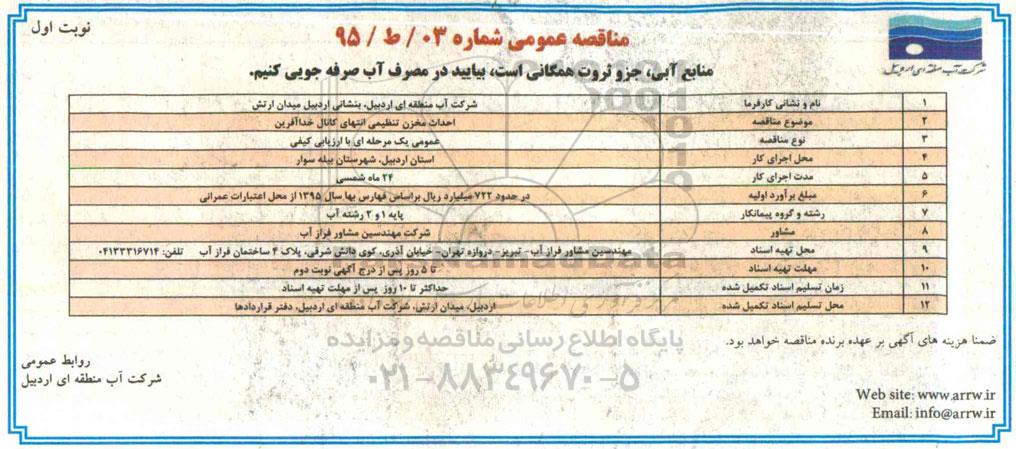 نوبت اول
مناقصه عمومی شماره ۰۳ / ط / ۹۵
شرکت آب منطقه ای اردبیل
منابع آبی، جزو ثروت همگانی است، بیایید در مصرف آب صرفه جویی کنیم.
۱ نام و نشانی کارفرما شرکت آب منطقه ای اردبیل، بنشانی اردبیل میدان ارتش
۲ موضوع مناقصه احداث مخزن تنظیمی انتهای کانال خداآفرین
۳ نوع مناقصه عمومی یک مرحله ای با ارزیابی کیفی
۴ محل اجرای کار استان اردبیل، شهرستان بیله سوار
۵ مدت اجرای کار ۲۴ ماه شمسی
۶ مبلغ برآورد اولیه در حدود ۷۲۲ میلیارد ریال براساس فهارس بها سال ۱۳۹۵ از محل اعتبارات عمرانی
۷ رشته و گروه پیمانکار پایه ۱ و ۲ رشته آب
۸ مشاور شرکت مهندسین مشاور فراز آب
۹ محل تهیه اسناد مهندسین مشاور فراز آب- تبریز- دروازه تهران- خیابان آذری، کوی دانش شرقی، پلاک ۴ ساختمان فراز آب تلفن: ۰۴۱۳۳۳۱۶۷۱۴
۱۰ مهلت تهیه اسناد تا ۵ روز پس از درج آگهی نوبت دوم
۱۱ زمان تسلیم اسناد تکمیل شده حداکثر تا ۱۰ روز پس از مهلت تهیه اسناد
۱۲ محل تسلیم اسناد تکمیل شده اردبیل، میدان ارتش، شرکت آب منطقه ای اردبیل، دفتر قراردادها
ضمنا هزینه های آگهی بر عهده برنده مناقصه خواهد بود.
پایگاه اطلاع رسانی مناقصه و مزایده
۰۲۱-۸۸۳۴۹۶۷۰-۵
روابط عمومی
شرکت آب منطقه ای اردبیل
Web site: www.arrw.ir
Email: info@arrw.ir